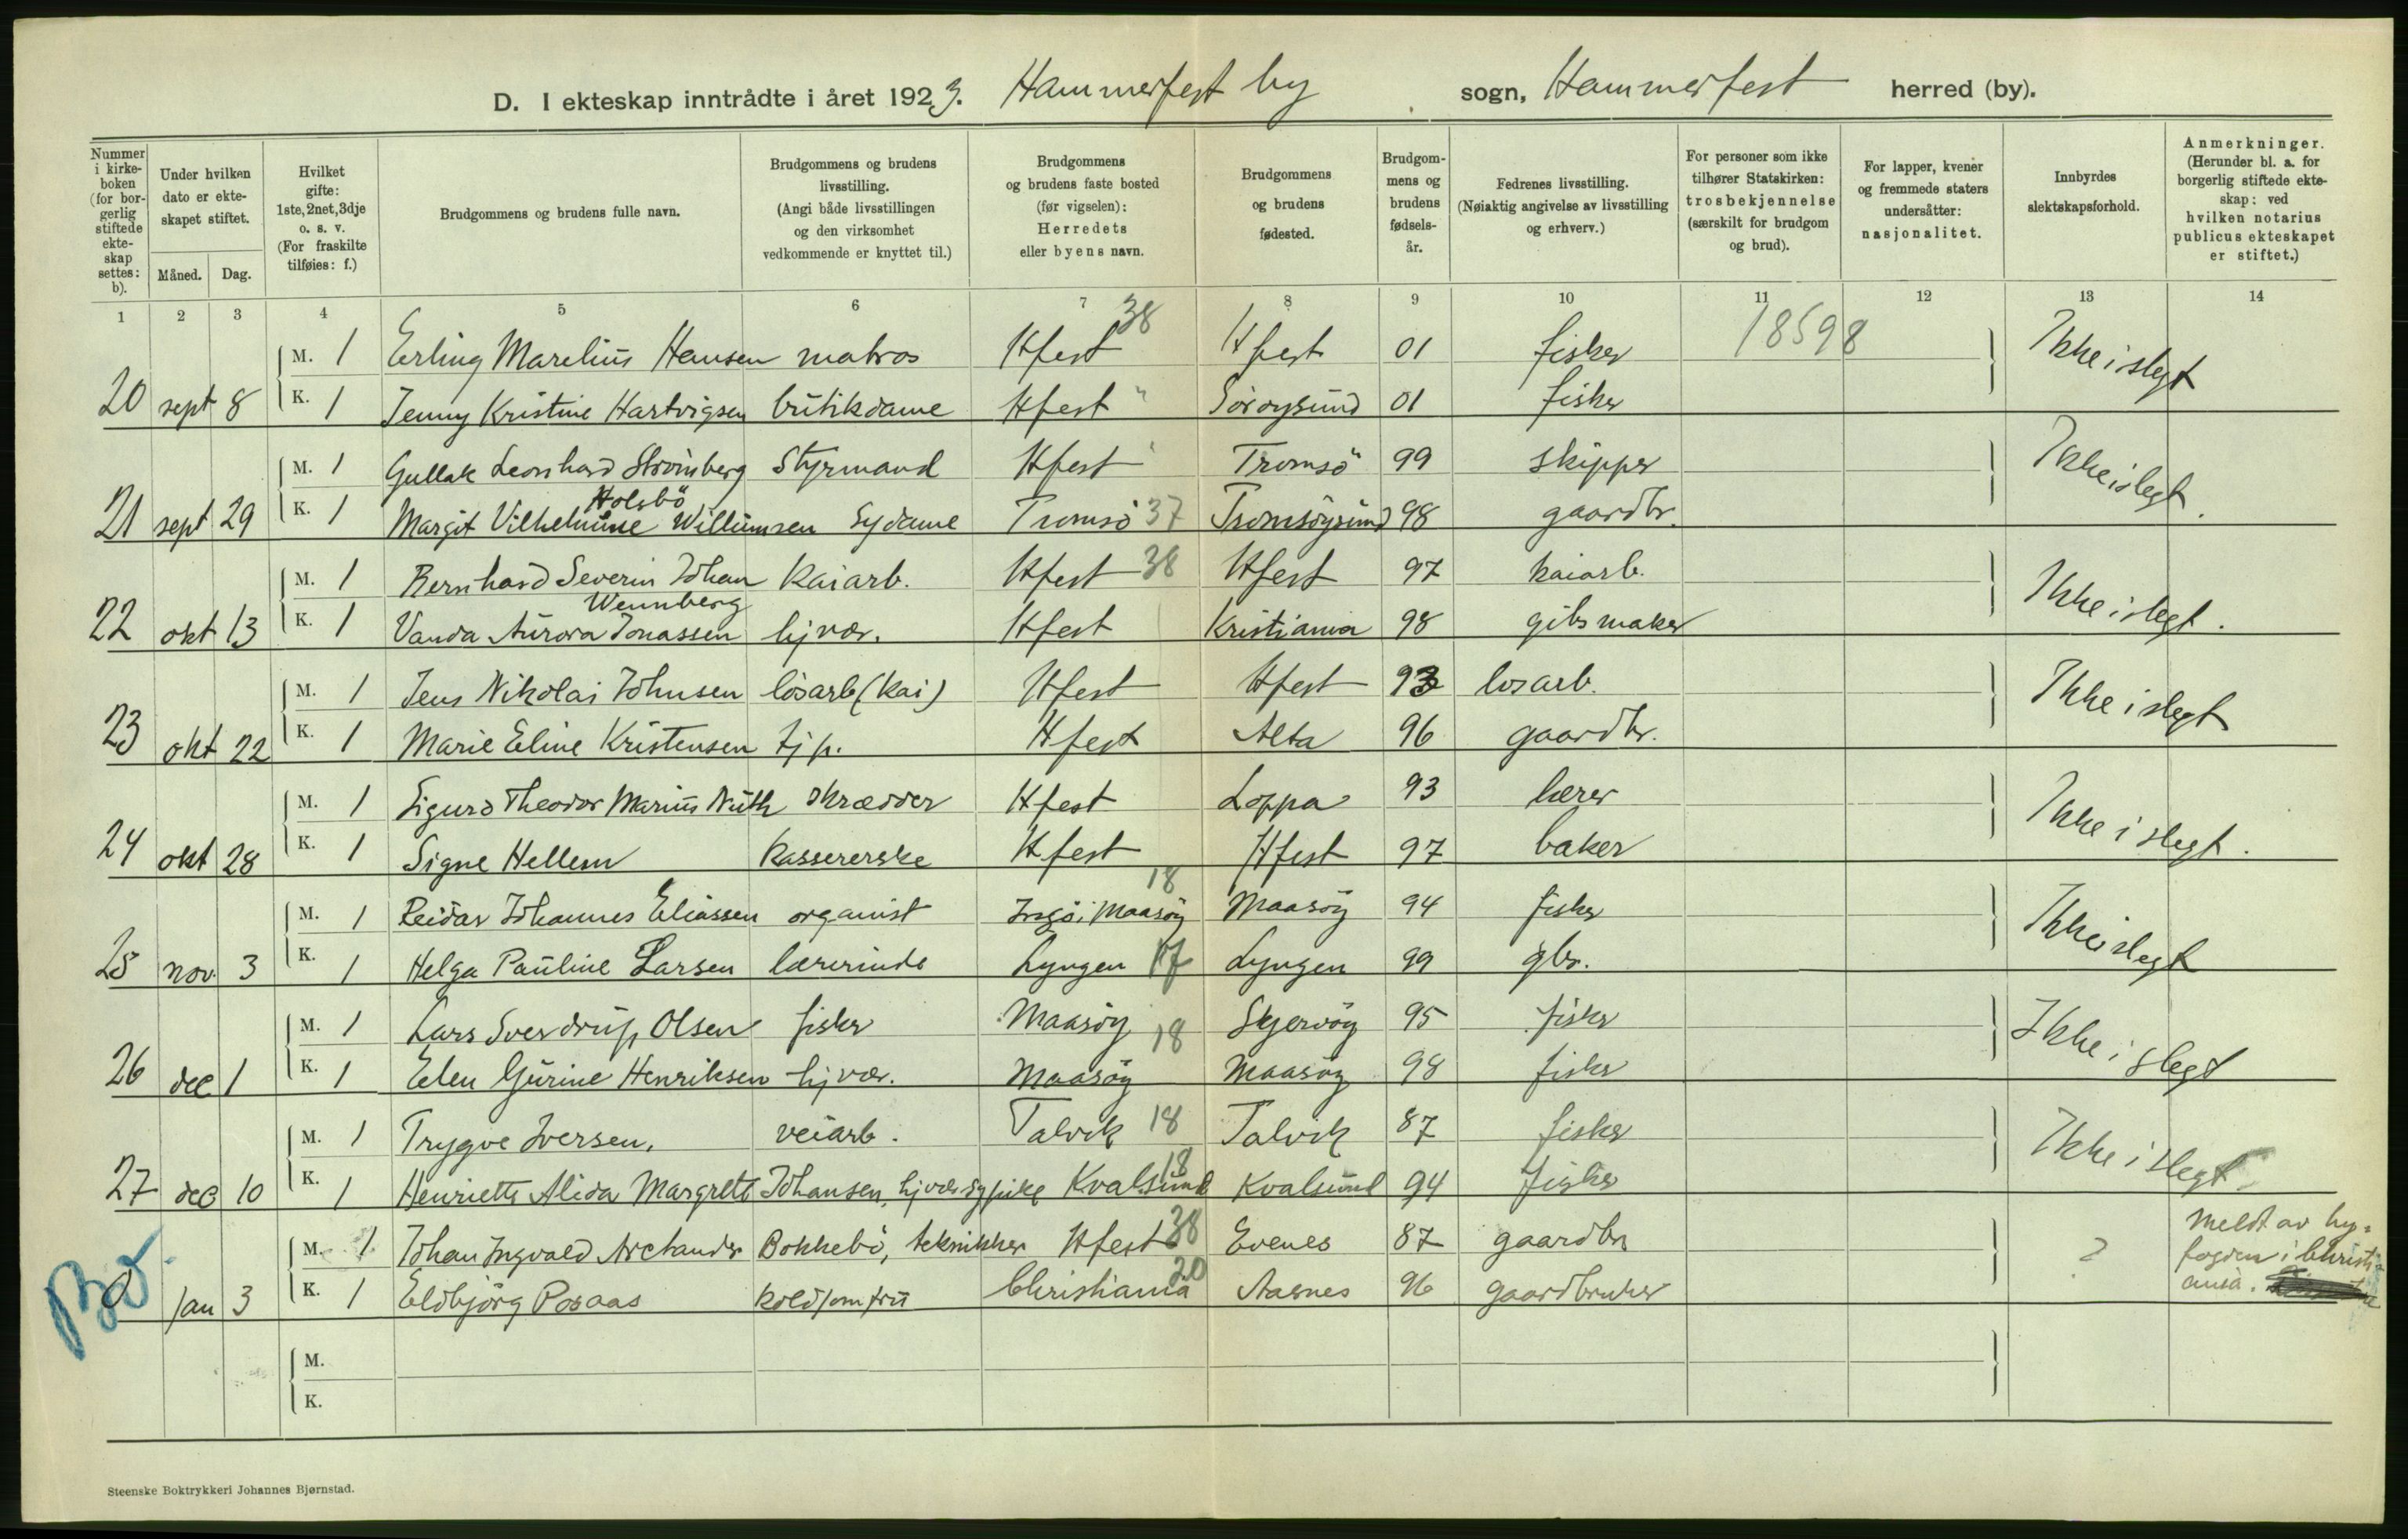 D. I ekteskap inntrådte i året 1923. Hammerfest by sogn, Hammerfest herred (by).
Nummer i kirkeboken (for borgerlig stiftede ekteskap settes: b).
Under hvilken dato er ekteskapet stiftet.
Måned. Dag.
Hvilket gifte: 1ste, 2net, 3dje o. s. v. (For fraskilte tilføies: f.)
Brudgommens og brudens fulle navn.
Brudgommens og brudens livsstilling. (Angi både livsstillingen og den virksomhet vedkommende er knyttet til.)
Brudgommens og brudens faste bosted (før vigselen): Herredets eller byens navn.
Brudgommens og brudens fødested.
Brudgommens og brudens fødselsår.
Fedrenes livsstilling. (Nøiaktig angivelse av livsstilling og erhverv.)
For personer som ikke tilhører Statskirken: trosbekjennelse (særskilt for brudgom og brud).
For lapper, kvener og fremmede staters undersåtter: nasjonalitet.
Innbyrdes slektskapsforhold.
Anmerkninger. (Herunder bl. a. for borgerlig stiftede ekteskap: ved hvilken notarius publicus ekteskapet er stiftet.)
1 2 3 4 5 6 7 8 9 10 11 12 13 14
M. 1 Erling Marelius Hansen matros Hfest 38 Hfest 01 fisker 18598 Ikke i slegt
20 sept 8 K. 1 Jenny Kristine Hartvigsen butikdame Hfest " Sörøysund 01 fisker
M. 1 Gullak Leonhard Strömberg Styrmand Hfest " Tromsö 99 skipper Ikke i slegt.
Holsbö
21 sept 29 K. 1 Margit Vilhelmine Willumsen Sydame Tromsö 37 Tromsöysund 98 gaardbr.
M. 1 Bernhard Severin Johan Kaiarb. Hfest 38 Hfest 97 kaiarb. Ikke i slegt.
Wennberg
22 okt 13 K. 1 Vanda Aurora Jonassen hj vær. Hfest Kristiania 98 gibsmaker
M. 1 Jens Nikolai Johnsen lösarb (kai) Hfest Hfest 93 losarb. Ikke i slegt
23 okt 22 K. 1 Marie Eline Kristensen tj p. Hfest Alta 96 gaardbr.
M. 1 Sigurd Theodor Marius Nuth skrædder Hfest Loppa 93 lærer Ikke i slegt.
24 okt 28 K. 1 Signe Hellem Kassererske Hfest Hfest 97 baker
M. 1 Reidar Johannes Eliassen organist Ingö i Maasöy 18 Maasöy 94 fisker Ikke i slegt
25 nov. 3 K. 1 Helga Pauline Larsen lærerinde Lyngen 17 Lyngen 99 gbr.
M. 1 Lars Sverdrup Olsen fisker Maasöy 18 Skjervöy 95 fisker Ikke i slegt
26 dec 1 K. 1 Elen Gurine Henriksen hj vær. Maasöy Maasöy 98 fisker
M. 1 Trygve Iversen. veiarb. Talvik 18 Talvik 87 fisker Ikke i slegt
27 dec 10 K. 1 Henriette Alida Margrete Johansen, hj vær sypike Kvalsund 18 Kvalsund 94 fisker
M. 1 Johan Ingvald Archander Bokkebö, tekniker Hfest 38 Evenes 87 gaardbr ? meldt av by-
fogden i Christi-
ania.
jan 3 K. 1 Eldbjörg Posaas koldjomfru Christiania 20 Aasnes 96 gaardbruker
M.
K.
Steenske Boktrykkeri Johannes Bjørnstad.